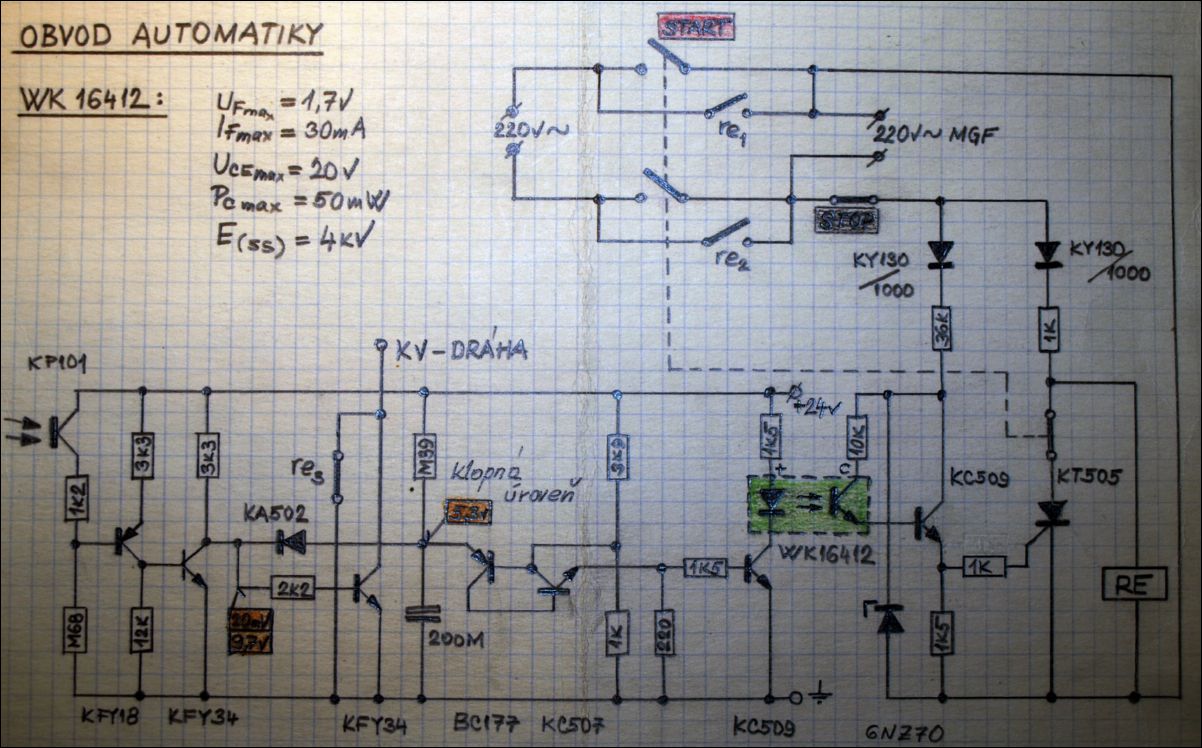 OBVOD AUTOMATIKY
START
WK 16412:
UFmax = 1,7V
IFmax = 30mA
UCEmax = 20V
PCmax = 50mW
E(ss) = 4KV
220V~
re1
220V~ MGF
re2
STOP
KY130/1000
KY130/1000
36K
1K
KP101
KV-DRÁHA
+24V
1K2
3K3
3K3
re3
M39
Klopná
úroveň
5,8V
1K5
10K
+
C
KC509
KT505
KA502
WK16412
2K2
1K5
1K
M68
12K
200M
1K
220
1K5
RE
KFY18
KFY34
KFY34
BC177
KC507
KC509
6NZ70